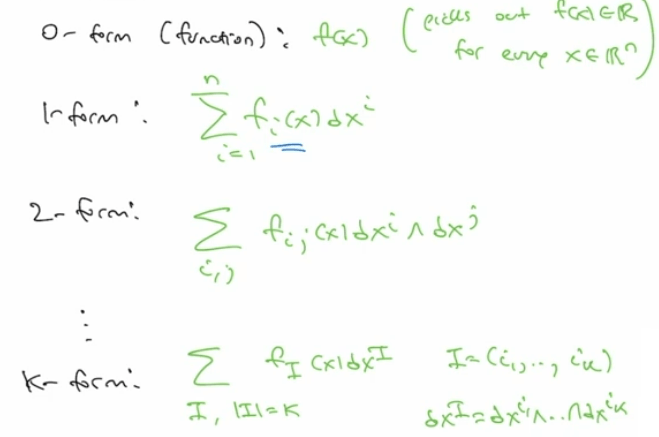 0- form (function): f(x) (picks out f(x)∈ℝ
for every x∈ℝⁿ)
1-form: ∑_{i=1}^{n} f_i(x)dx^i
2-form: ∑_{i,j} f_{ij}(x)dx^i ∧ dx^j
⋮
K-form: ∑_{I, |I|=K} f_I(x)dx^I I=(i_1,.., i_k)
dx^I=dx^{i_1}∧..∧dx^{i_k}